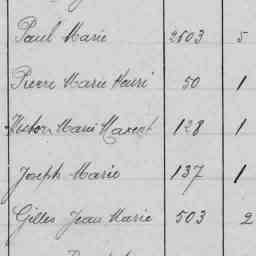 Paul Marie 2603 5
Pierre Marie Henri 50 1
Victor Marie 128 1
Joseph Marie 137 1
Gilles Jean Marie 503 2